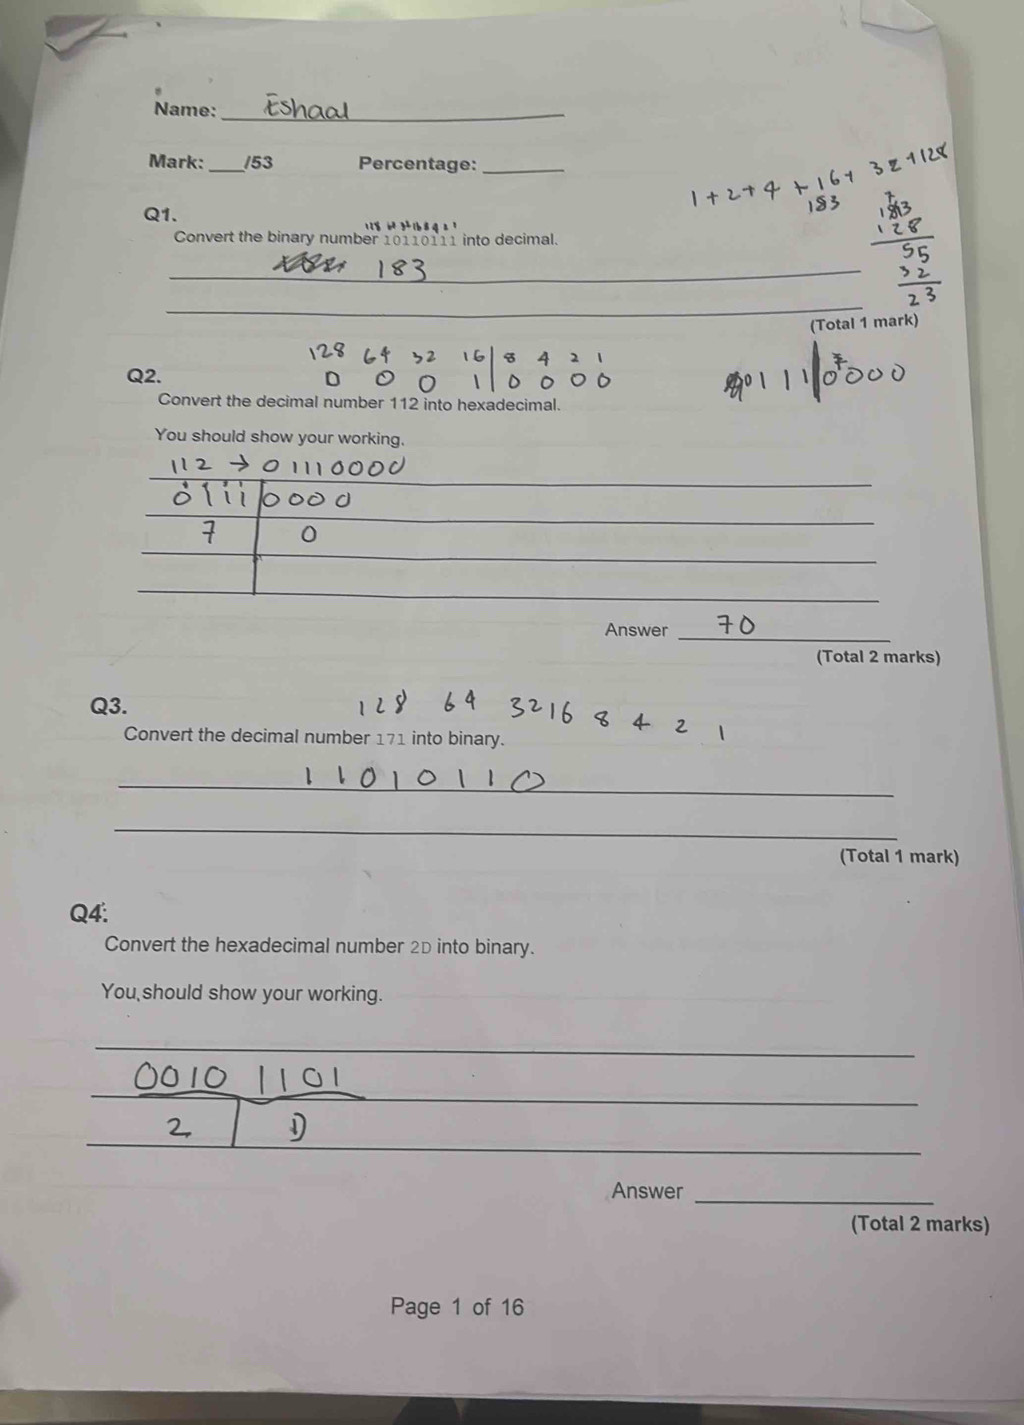 Name: Eshaal
Mark: ___/53 Percentage: ______
1 + 2 + 4 + 16 + 32 + 128
183
Q1.
128
55
32
23
Convert the binary number 10110111 into decimal.
183
(Total 1 mark)
128 64 32 16 8 4 2 1
0 0 0 1 0 0 0 0
0111 0000
Q2.
Convert the decimal number 112 into hexadecimal.
You should show your working.
112 → 01110000
0111 0000
7 0
Answer 70
(Total 2 marks)
Q3.
128 64 32 16 8 4 2 1
Convert the decimal number 171 into binary.
11010110
(Total 1 mark)
Q4.
Convert the hexadecimal number 2D into binary.
You should show your working.
0010 1101
2 D
Answer
(Total 2 marks)
Page 1 of 16